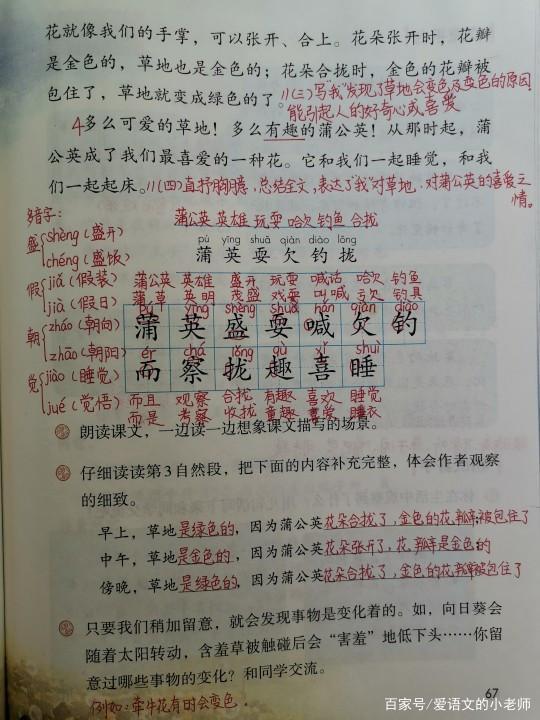 花就像我们的手掌，可以张开、合上。花朵张开时，花瓣
是金色的，草地也是金色的；花朵合拢时，金色的花瓣被
包住了，草地就变成绿色的了。//(三)写"我"发现了草地会变色及变色的原因
能引起人的好奇心或喜爱
4多么可爱的草地！多么有趣的蒲公英！从那时起，蒲
公英成了我们最喜爱的一种花。它和我们一起睡觉，和我
们一起起床。//(四)直抒胸臆，总结全文，表达了"我"对草地，对蒲公英的喜爱之
情。
多音字：
蒲公英 英雄 玩耍 哈欠 钓鱼 合拢
盛 shèng(盛开)
chéng(盛饭)
pú yīng shuǎ qiàn diào lǒng
蒲 英 耍 欠 钓 拢
假 jiǎ(假装)
jià(假日)
蒲公英 英雄 盛开 玩耍 喊话 哈欠 钓鱼
蒲草 英明 茂盛 戏耍 叫喊 亏欠 钓具
pú yīng shèng shuǎ hǎn qiàn diào
蒲 英 盛 耍 喊 欠 钓
朝 cháo(朝向)
zhāo(朝阳)
ér chá lǒng qù xǐ shuì
而 察 拢 趣 喜 睡
觉 jiào(睡觉)
jué(觉悟)
而且 观察 合拢 有趣 喜欢 睡觉
而是 考察 收拢 童趣 喜爱 睡衣
朗读课文，一边读一边想象课文描写的场景。
仔细读读第3自然段，把下面的内容补充完整，体会作者观察
的细致。
早上，草地是绿色的，因为蒲公英花朵合拢了，金色的花瓣被包住了
中午，草地是金色的，因为蒲公英花朵张开了，花瓣是金色的
傍晚，草地是绿色的，因为蒲公英花朵合拢了，金色的花瓣被包住了
只要我们稍加留意，就会发现事物是变化着的。如，向日葵会
随着太阳转动，含羞草被触碰后会"害羞"地低下头……你留
意过哪些事物的变化？和同学交流。
例如：牵牛花有时会变色。
67
百家号/爱语文的小老师